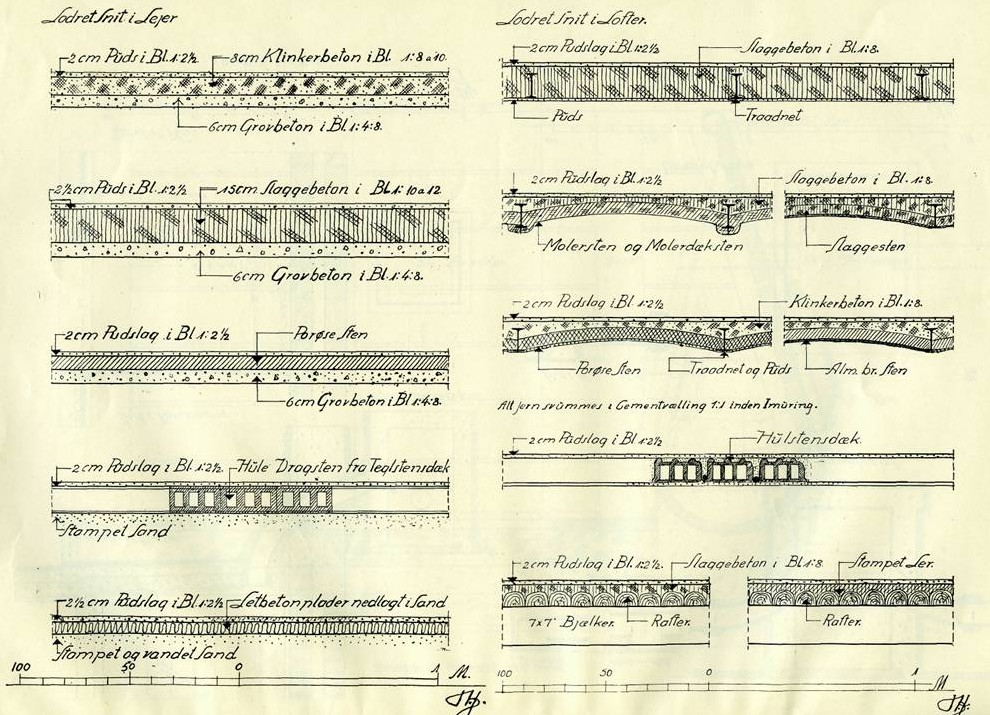 Lodret Snit i Lejer
2 cm Puds i Bl. 1:2½
8cm Klinkerbeton i Bl. 1:8 a 10.
6cm Grovbeton i Bl. 1:4:8.
2½cm Puds i Bl. 1:2½
15cm Slaggebeton i Bl. 1:10 a 12
6cm Grovbeton i Bl. 1:4:8.
2cm Pudslag i Bl 1:2½
Porøse Sten
6cm Grovbeton i Bl 1:4:8.
2cm Pudslag i Bl 1:2½.
Hule Dragsten fra Teglstensdæk
Stampet Sand
2½ cm Pudslag i Bl. 1:2½
Letbetonplader nedlagt i Sand
Stampet og vandet Sand.
100
50
0
1
M.
Lodret Snit i Lofter.
2cm Pudslag i Bl 1:2½
Slaggebeton i Bl. 1:8.
Puds
Traadnet
2 cm Pudslag i Bl 1:2½
Slaggebeton i Bl. 1:8.
Molersten og Molerdæksten
Slaggesten
2 cm Pudslag i Bl 1:2½
Klinkerbeton i Bl. 1:8.
Porøse Sten
Traadnet og Puds
Alm. br. Sten
Alt Jern svummes i Cementvælling 1:1 inden Imuring.
2 cm Pudslag i Bl 1:2½
Hulstensdæk.
2cm Pudslag i Bl. 1:2½.
Slaggebeton i Bl 1:8
Stampet Ler.
7x7" Bjælker.
Rafter.
Rafter.
100
50
0
1
M